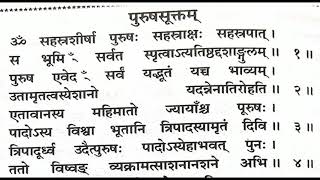 पुरुषसूक्तम्
ॐ सहस्रशीर्षा पुरुषः सहस्राक्षः सहस्रपात् ।
स भूमिँ सर्वत स्पृत्वाऽत्यतिष्ठद्दशाङ्गुलम् ॥ १ ॥
पुरुष एवेदँ सर्वं यद्भूतं यच्च भाव्यम् ।
उतामृतत्वस्येशानो यदन्नेनातिरोहति ॥ २ ॥
एतावानस्य महिमातो ज्यायाँश्च पूरुषः ।
पादोऽस्य विश्वा भूतानि त्रिपादस्यामृतं दिवि ॥ ३ ॥
त्रिपादूर्ध्व उदैत्पुरुषः पादोऽस्येहाभवत् पुनः ।
ततो विष्वङ् व्यक्रामत्साशनानशने अभि ॥ ४ ॥